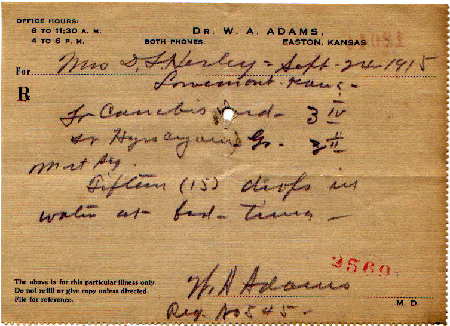 OFFICE HOURS:
8 TO 11:30 A. M.
4 TO 6 P. M.
DR. W. A. ADAMS,
BOTH PHONES. EASTON, KANSAS
For Mrs D. L. Sept. 24 1915
Lowemont Kans.
R
Tr Cannabis Ind - ʒ IV
Tr Hyoscyami Gr. ʒ II
M et Sig.
Fifteen (15) drops in
water at bed-time -
2569
The above is for this particular illness only.
Do not refill or give copy unless directed.
File for reference.
W. A. Adams M. D.
Reg. No 545.